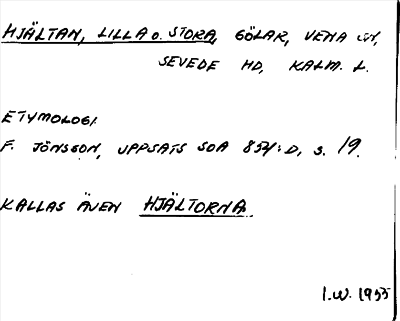 HJÄLTAN, LILLA o. STORA, GÖLAR, VENA SN,
SEVEDE HD, KALM. L.
ETYMOLOGI.
F. JÖNSSON, UPPSATS SOA 854:D, S. 19.
KALLAS ÄVEN HJÄLTORNA.
I.W. 1955